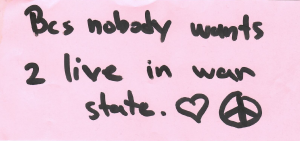 Bcs nobody wants
2 live in war
state. ♡ ☮